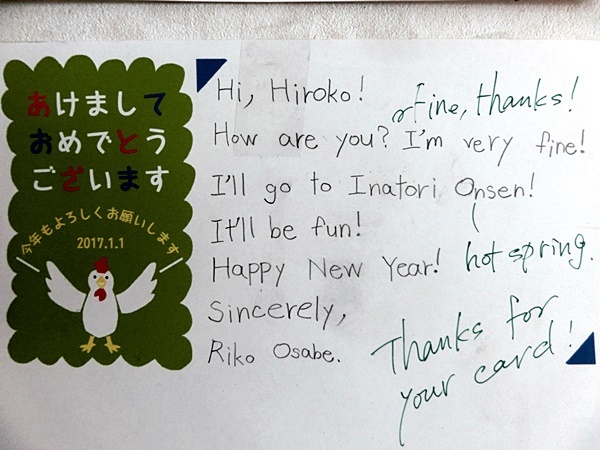 あけまして
おめでとう
ございます
今年もよろしくお願いします
2017.1.1
Hi, Hiroko!
Fine, thanks!
How are you? I'm very fine!
I'll go to Inatori Onsen!
hot spring.
It'll be fun!
Happy New Year!
Sincerely,
Riko Osabe.
Thanks for
your card!